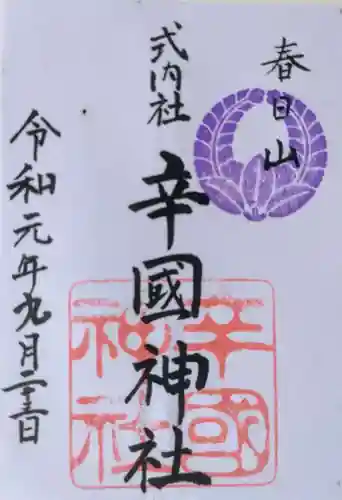 春日山
式内社
辛國神社
令和元年九月二十三日
辛國
神社